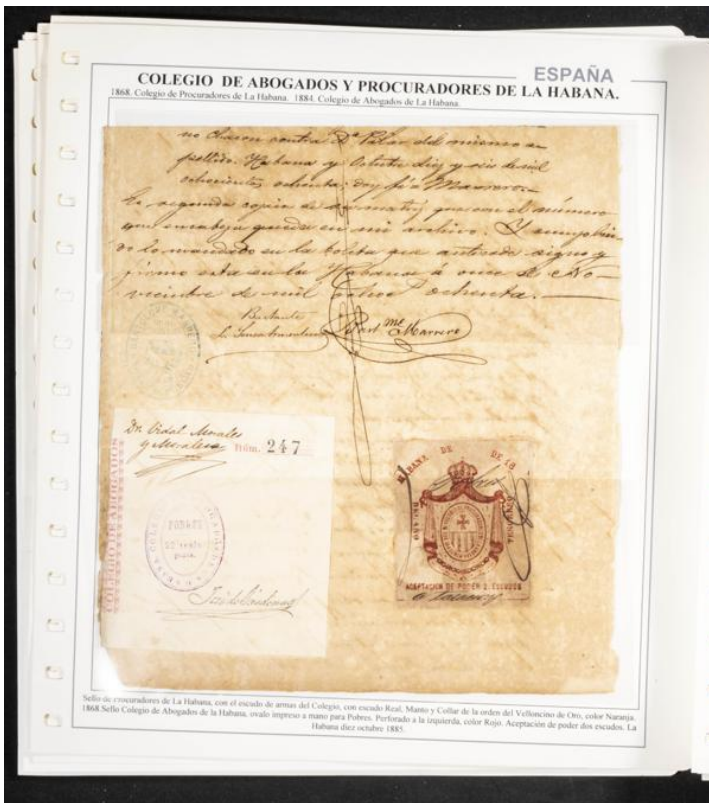 ESPAÑA
COLEGIO DE ABOGADOS Y PROCURADORES DE LA HABANA.
1868. Colegio de Procuradores de La Habana. 1884. Colegio de Abogados de La Habana.
contra Dª Pilar del mismo a
pellido. Habana y Octubre diez y seis de mil
ochocientos ochenta; doy fé = Marrero. =
Es segunda copia de su matriz que con el número
que encabeza queda en mi archivo. Y cumplien
do lo mandado en la boleta que antecede signo y
firmo esta en la Habana á once de No-
viembre de mil ochoc ochenta.
Bartme Marrero
Dr. Vidal Morales
y Morales
Núm. 247
COLEGIO DE ABOGADOS
POBRES
HABANA DE DE 18
DEL AÑO
ACEPTACION DE PODER 2. ESCUDOS
Sello de Procuradores de La Habana, con el escudo de armas del Colegio, con escudo Real, Manto y Collar de la orden del Velloncino de Oro, color Naranja.
1868.Sello Colegio de Abogados de la Habana, ovalo impreso a mano para Pobres. Perforado a la izquierda, color Rojo. Aceptación de poder dos escudos. La
Habana diez octubre 1885.